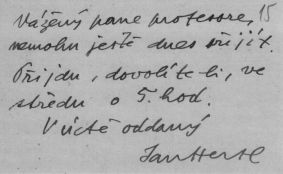 Vážený pane profesore, 15
nemohu ještě dnes přijít.
Přijdu, dovolíte-li, ve
středu o 5. hod.
V úctě oddaný
Jan Hertl